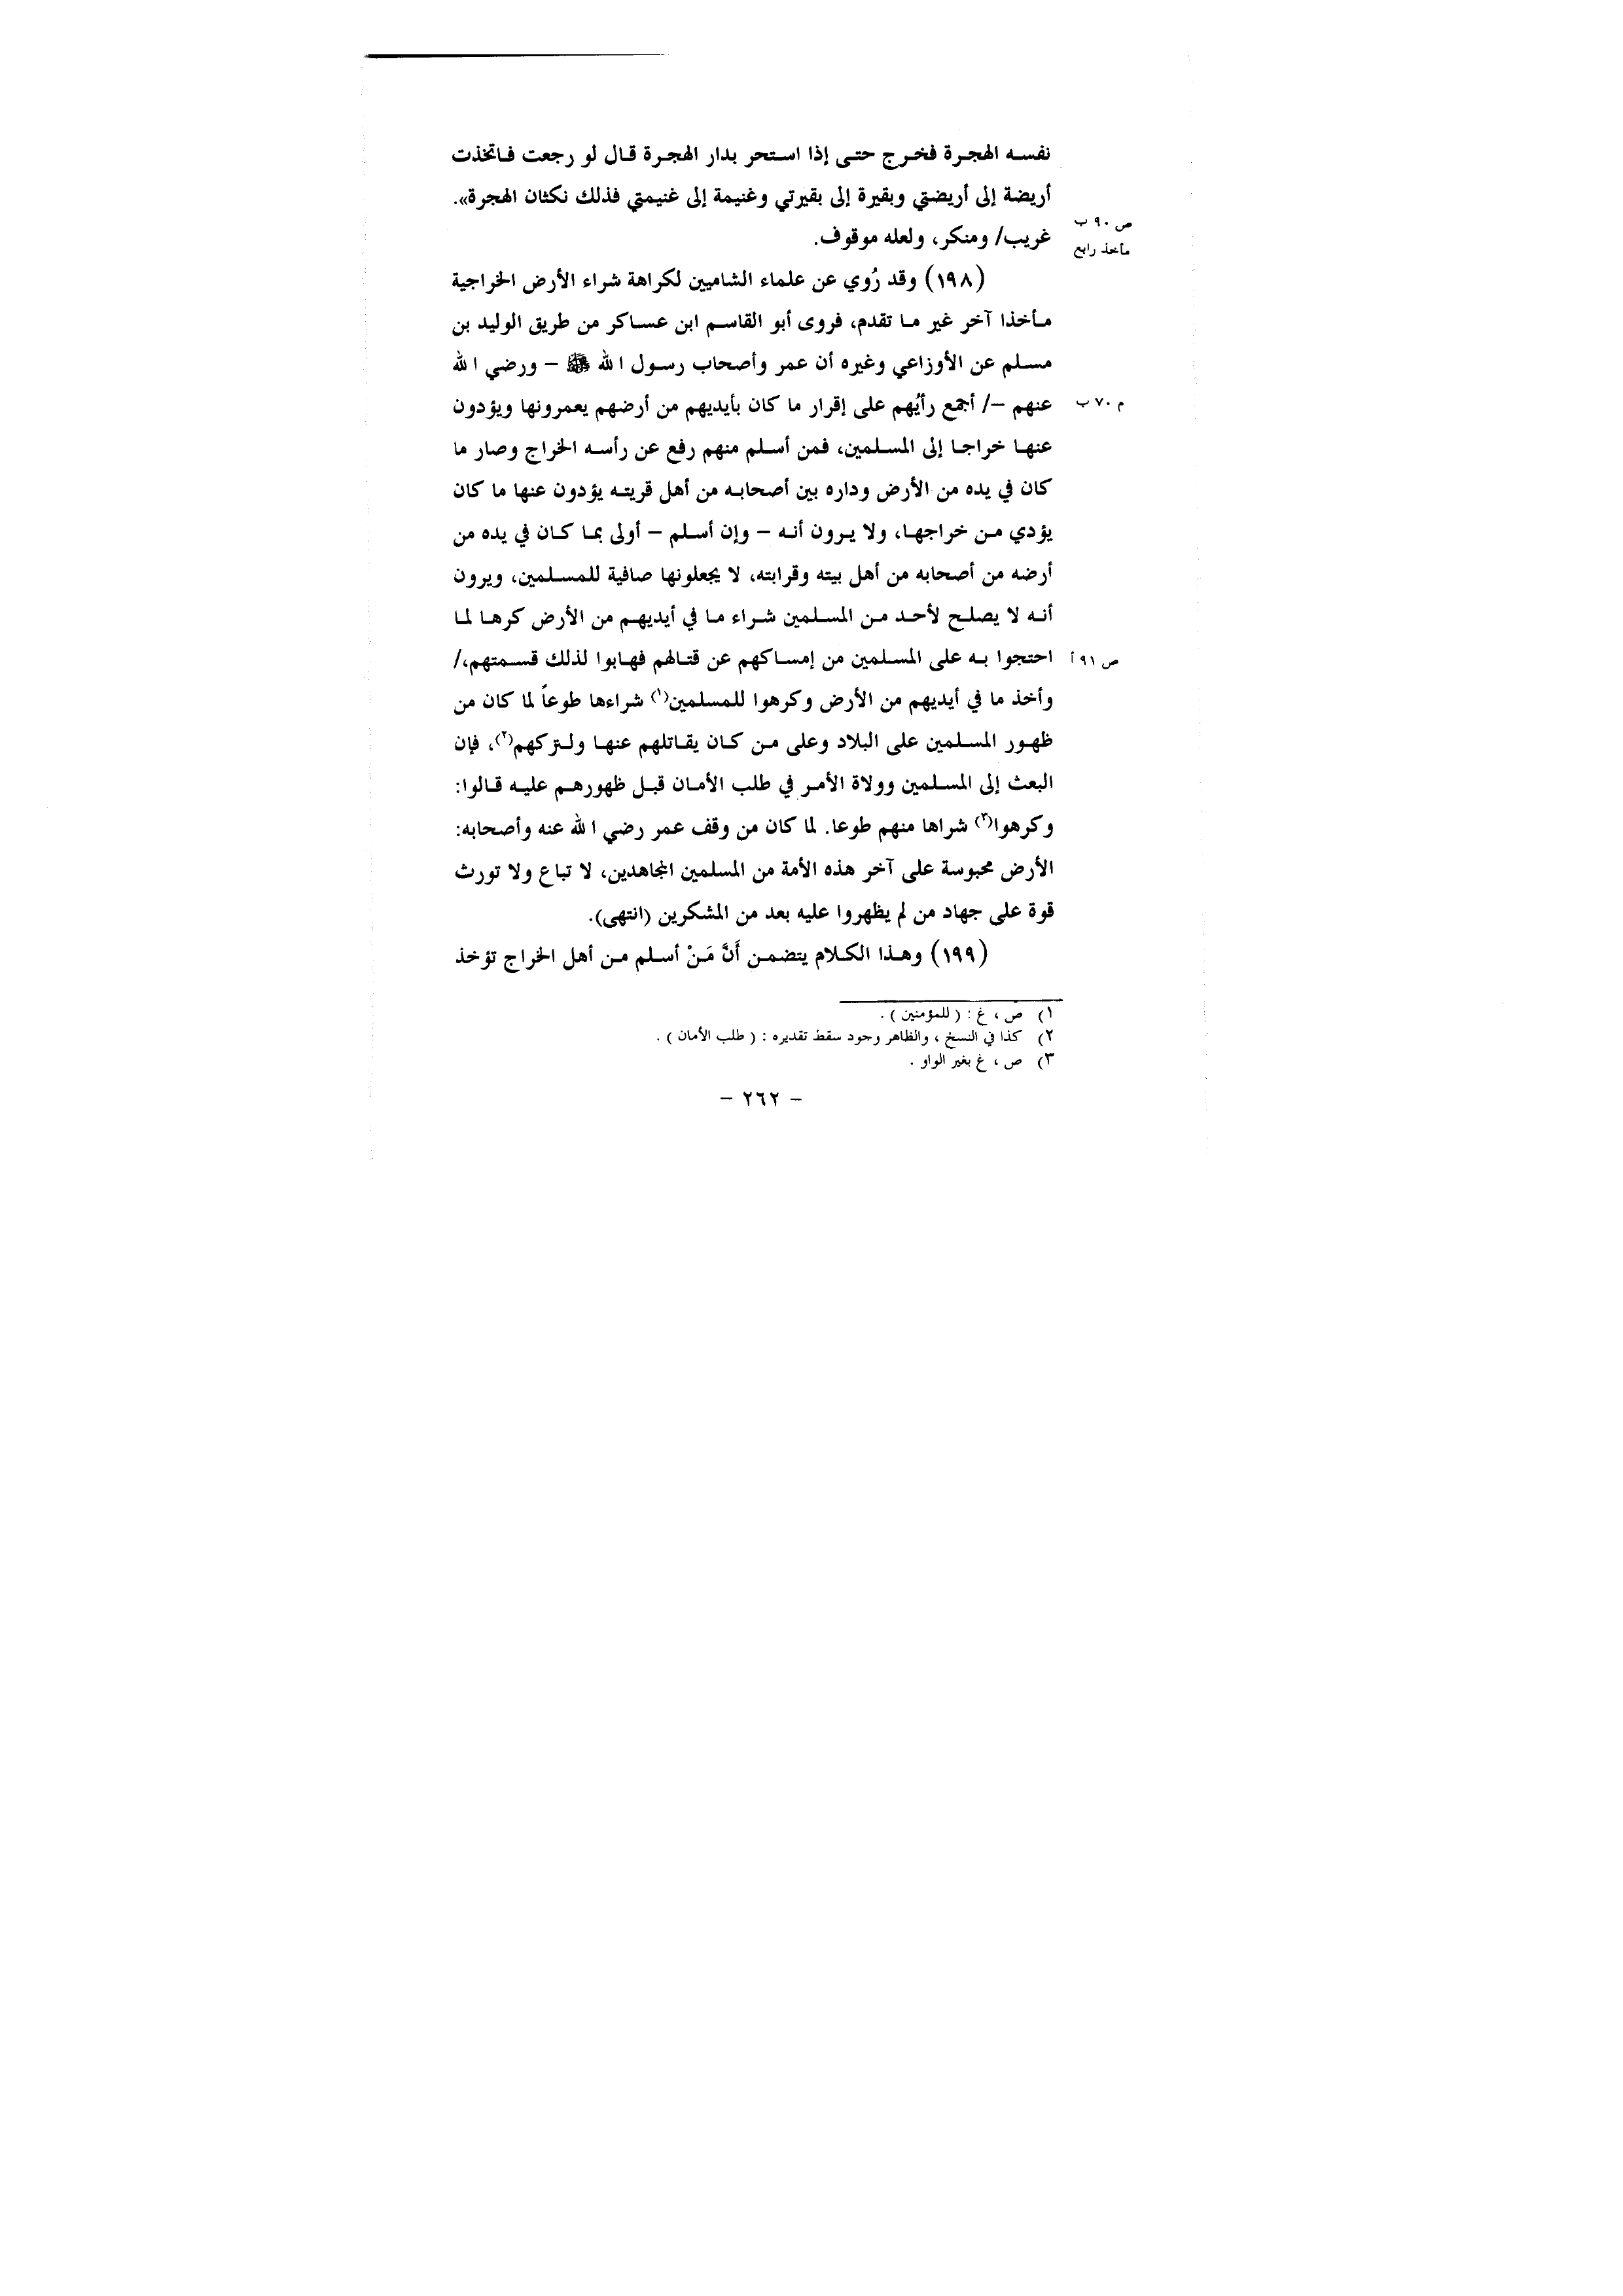 نفسه الهجرة فخرج حتى إذا استحر بدار الهجرة قال لو رجعت فاتخذت
أريضة إلى أريضتي وبقيرة إلى بقيرتي وغنيمة إلى غنيمتي فذلك نكثان الهجرة».
ص ٩٠ ب
غريب/ ومنكر، ولعله موقوف.
مأخذ رابع
(١٩٨) وقد رُوي عن علماء الشاميين لكراهة شراء الأرض الخراجية
مأخذا آخر غير ما تقدم، فروى أبو القاسم ابن عساكر من طريق الوليد بن
مسلم عن الأوزاعي وغيره أن عمر وأصحاب رسول الله ﷺ – ورضي الله
عنهم –/ أجمع رأيُهم على إقرار ما كان بأيديهم من أرضهم يعمرونها ويؤدون
م ٧٠ ب
عنها خراجا إلى المسلمين، فمن أسلم منهم رفع عن رأسه الخراج وصار ما
كان في يده من الأرض وداره بين أصحابه من أهل قريته يؤدون عنها ما كان
يؤدي من خراجها، ولا يرون أنه – وإن أسلم – أولى بما كان في يده من
أرضه من أصحابه من أهل بيته وقرابته، لا يجعلونها صافية للمسلمين، ويرون
أنه لا يصلح لأحد من المسلمين شراء ما في أيديهم من الأرض كرها لما
احتجوا به على المسلمين من إمساكهم عن قتالهم فهابوا لذلك قسمتهم،/
ص ٩١ أ
وأخذ ما في أيديهم من الأرض وكرهوا للمسلمين(١) شراءها طوعاً لما كان من
ظهور المسلمين على البلاد وعلى من كان يقاتلهم عنها ولتركهم(٢)، فإن
البعث إلى المسلمين وولاة الأمر في طلب الأمان قبل ظهورهم عليه قالوا:
وكرهوا(٣) شراها منهم طوعا. لما كان من وقف عمر رضي الله عنه وأصحابه:
الأرض محبوسة على آخر هذه الأمة من المسلمين المجاهدين، لا تباع ولا تورث
قوة على جهاد من لم يظهروا عليه بعد من المشكرين (انتهى).
(١٩٩) وهذا الكلام يتضمن أَنَّ مَنْ أسلم من أهل الخراج تؤخذ
١) ص ، غ : ( للمؤمنين ) .
٢) كذا في النسخ ، والظاهر وجود سقط تقديره : ( طلب الأمان ) .
٣) ص ، غ بغير الواو .
– ٢٦٢ –